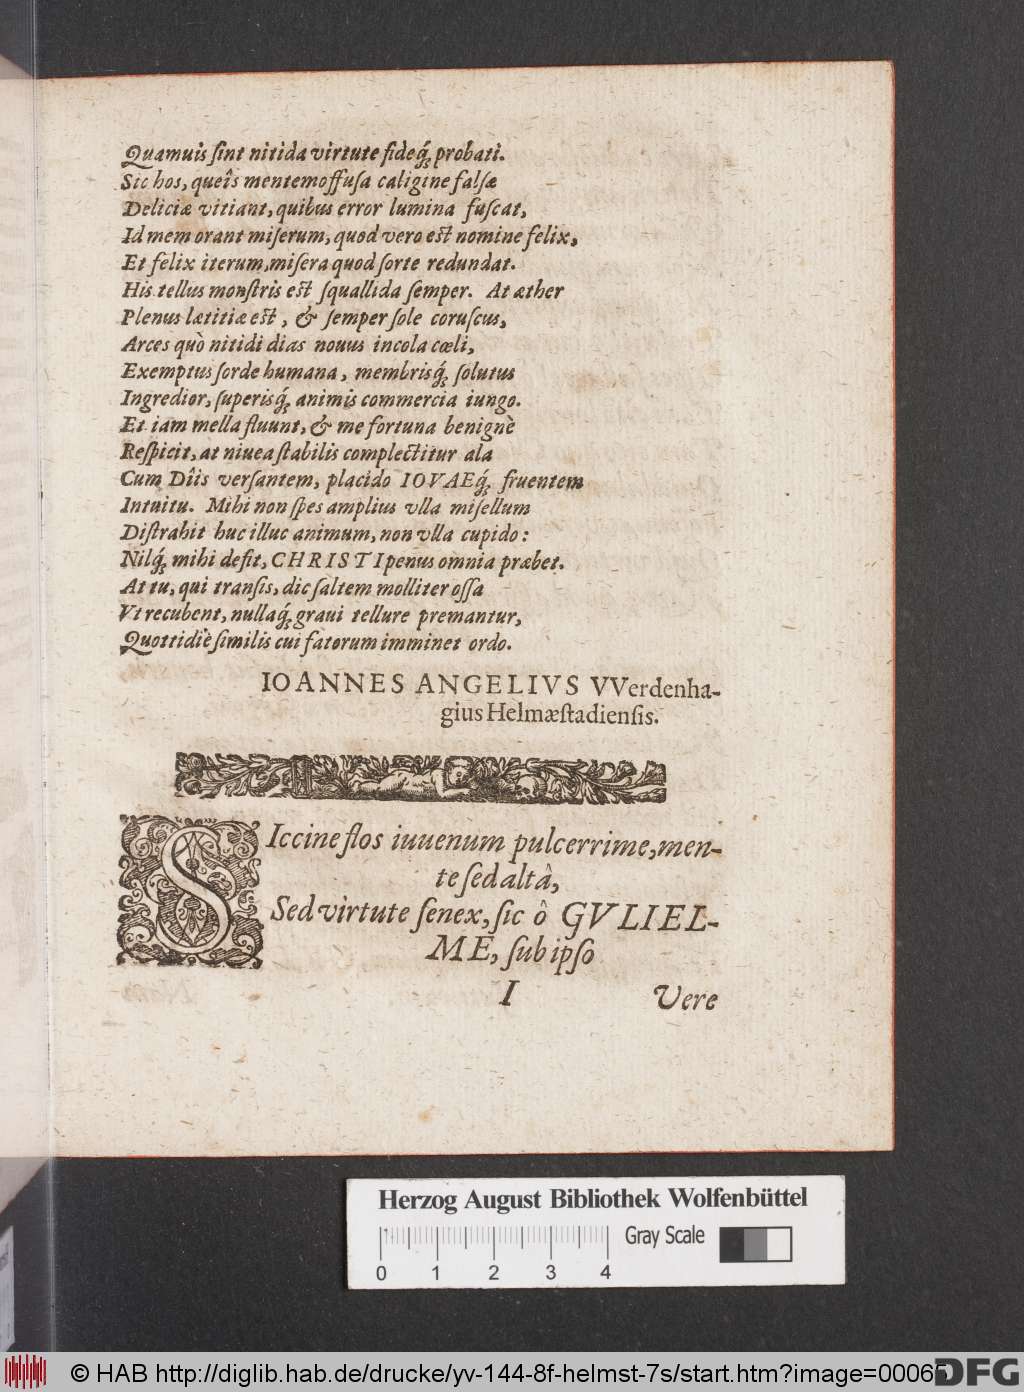 Quamuis ſint nitida virtute fideq́; probati.
Sic hos, queîs mentem offuſa caligine falſæ
Deliciæ vitiant, quibus error lumina fuſcat,
Id mem orant miſerum, quod vero est nomine felix,
Et felix iterum, miſera quod ſorte redundat.
His tellus monſtris est ſquallida ſemper. At æther
Plenus lætitiæ est, & ſemper ſole coruſcus,
Arces quò nitidi dias nouus incola cœli,
Exemptus ſorde humana, membrisq́; ſolutus
Ingredior, ſuperisq́; animis commercia iungo.
Et iam mella fluunt, & me fortuna benignè
Reſpicit, at niuea ſtabilis complectitur ala
Cum Dîis verſantem, placido IOVAEq́; fruentem
Intuitu. Mihi non ſpes amplius vlla miſellum
Diſtrahit huc illuc animum, non vlla cupido:
Nilq́; mihi deſit, CHRISTI penus omnia præbet.
At tu, qui tranſis, dic ſaltem molliter oſſa
Vt recubent, nullaq́; graui tellure premantur,
Quottidiè ſimilis cui fatorum imminet ordo.
IOANNES ANGELIVS VVerdenha-
gius Helmæſtadienſis.
SIccine flos iuuenum pulcerrime, men-
te ſed altâ,
Sed virtute ſenex, ſic ô GVLIEL-
ME, ſub ipſo
I Vere
Herzog August Bibliothek Wolfenbüttel
Gray Scale
0 1 2 3 4
© HAB http://diglib.hab.de/drucke/yv-144-8f-helmst-7s/start.htm?image=00065
DFG